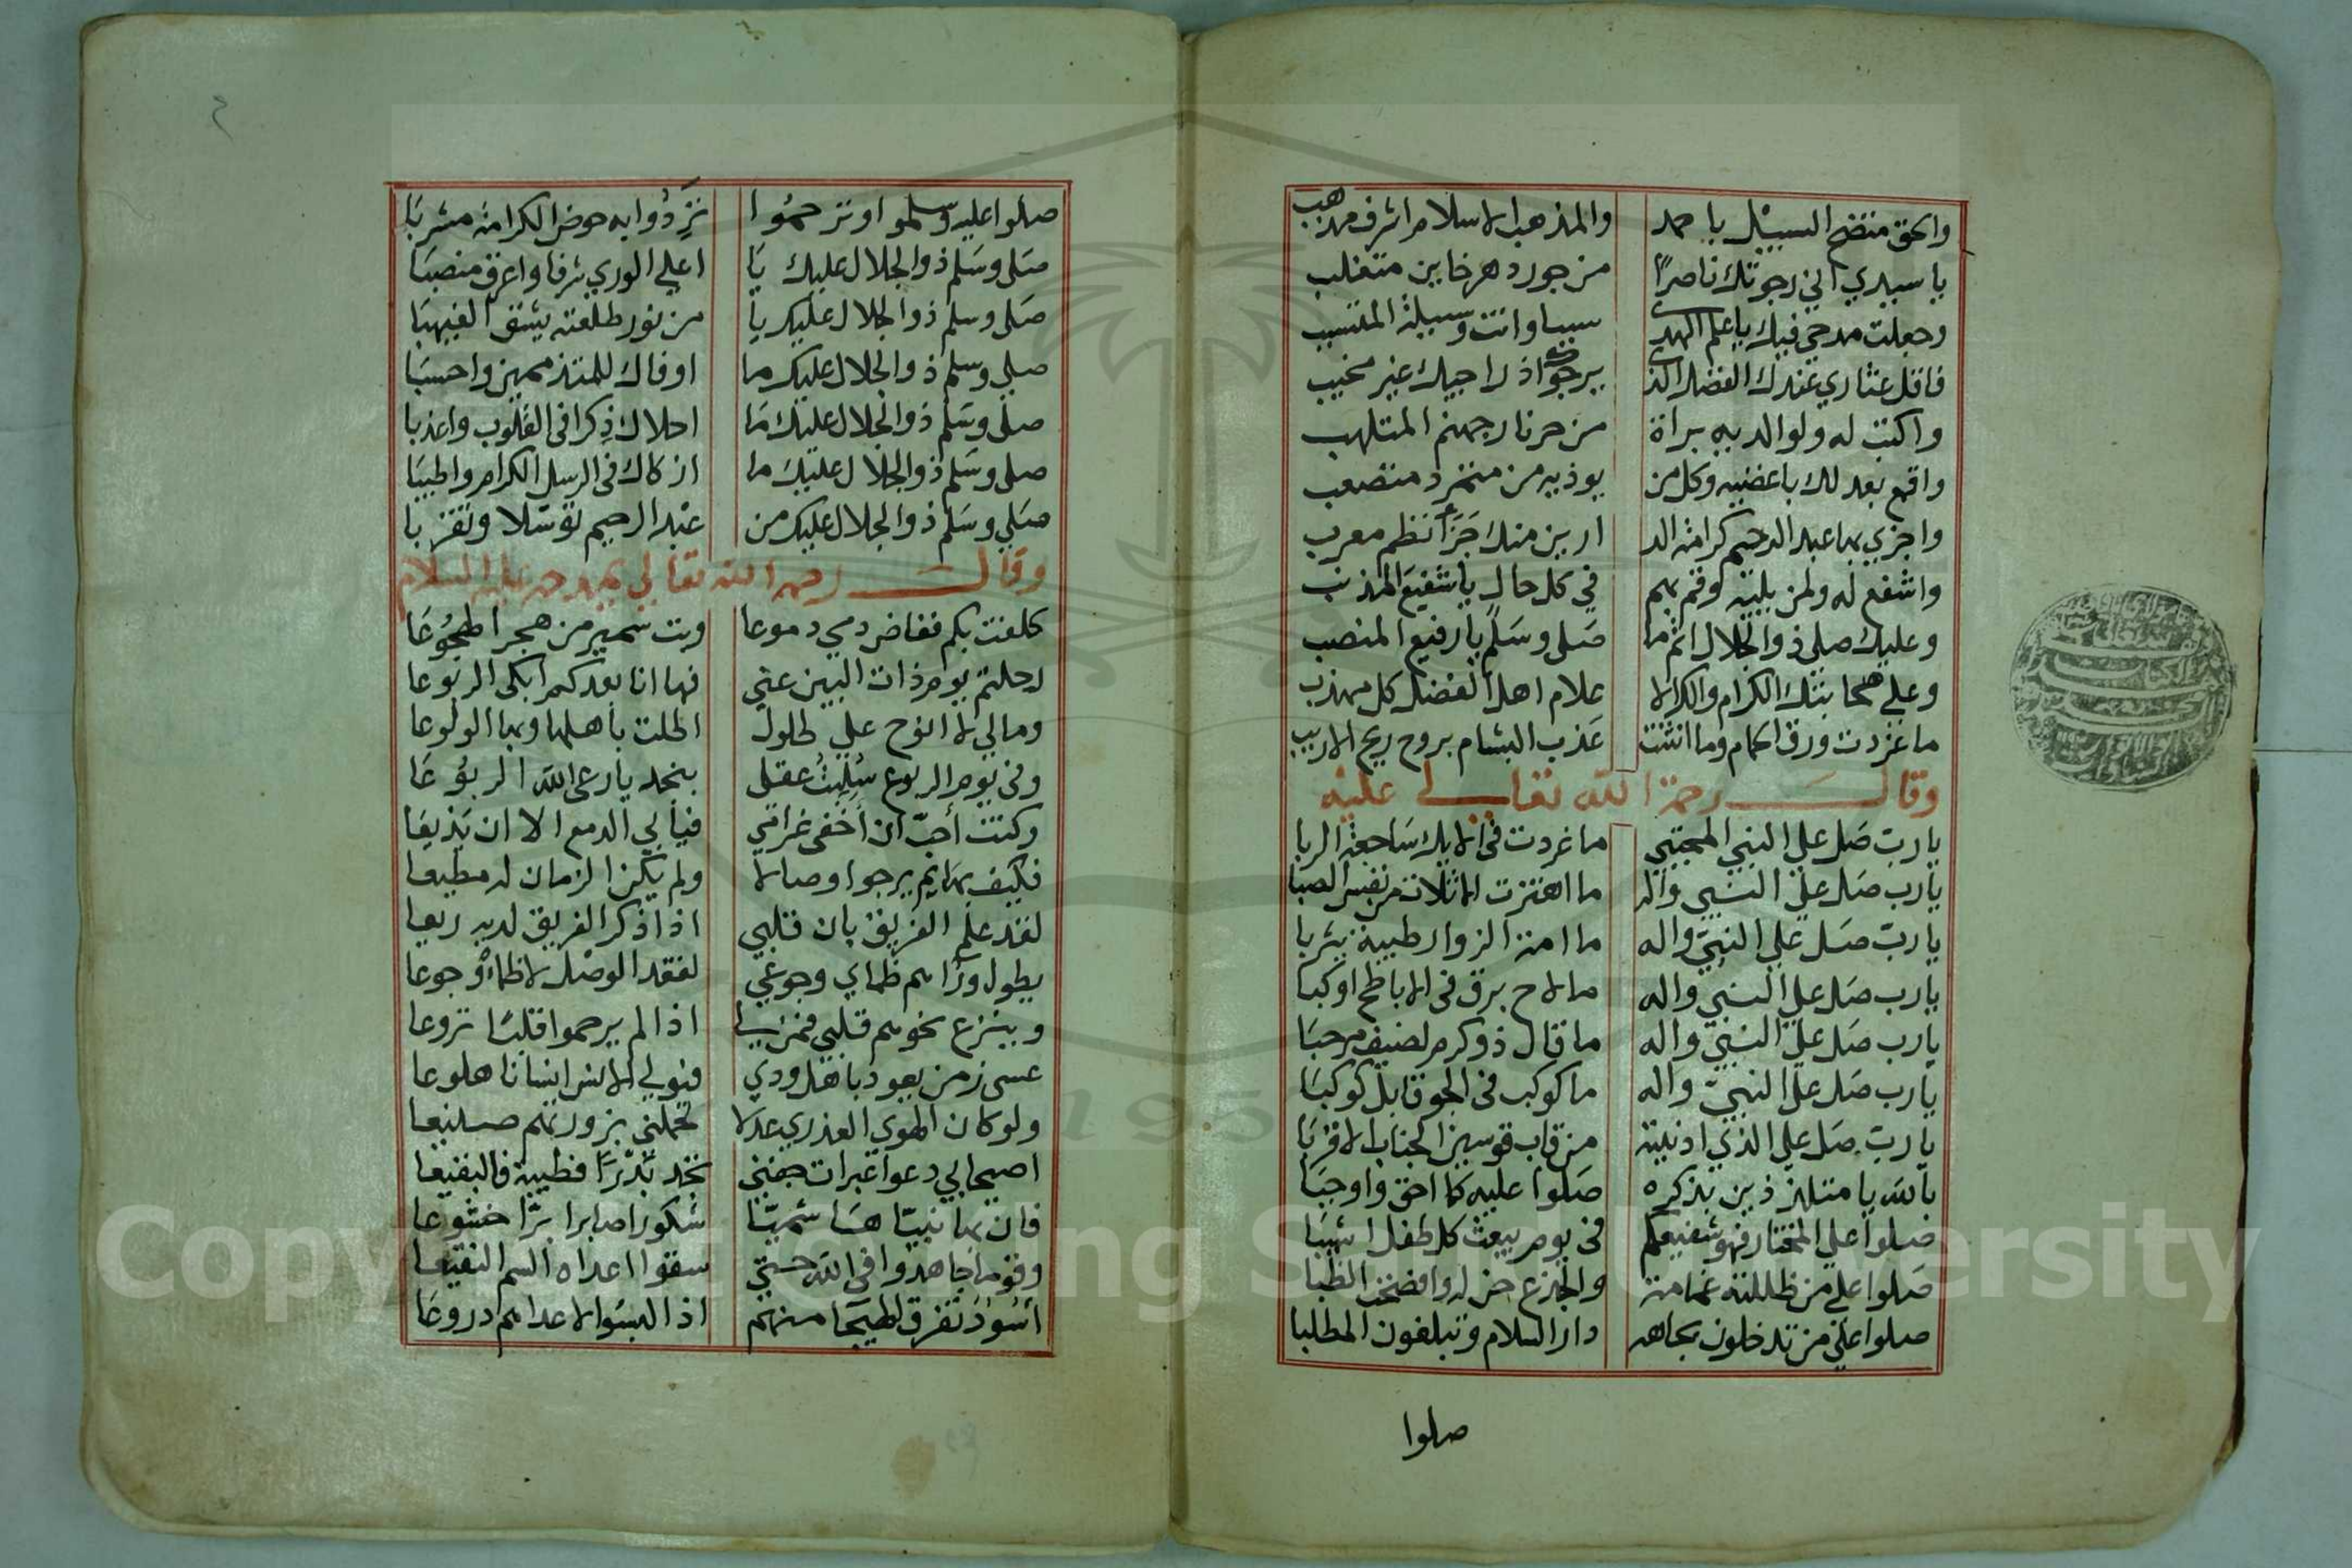 والحق متضح السبيل باحمد والمذهب الاسلام اشرف مذهب
يا سيدي اني رجوتك ناصرًا من جور دهر خاين متغلب
وجعلت مدحي فيك ياعلم الهدى سببا وانت وسيلة المتسبب
فاقل عثاري عندك الفضل الذي يرجو اذ راجيك غير مخيب
واكتب له ولوالديه براة من حر نار جهنم المتلهب
واقمع بعدلك باغضيه وكل من يوذيه من متمرد متصعب
واجزي بها عبد الرحيم كرامة الد ارين منك جَزَآ نظم معرب
واشفع له ولمن يليه وقم بهم في كل حال يا شفيع المذنب
وعليك صلي ذو الجلال اتم ما صَلى وسَلم يا رفيع المنصب
وعلي صحابتك الكرام والك الا علام اهل الفضل كل مهذب
ما غردت ورق الحمام وما انثنت عَذب البشام بروح ريح الازيب
وقال رحمة الله تعالي عليه
يا رب صَل علي النبي المجتبي ما غردت في الايك سَاجعة الربا
يا رب صَل علي النبي واله ما اهتزت الاثلات من نفس الصبا
يا رب صَل علي النبيّ واله ما امت الزوار طيبة يثربا
يا رب صَل علي النبي واله ما لاح برق في الاباطح اوكبا
يا رب صَل علي النبيّ واله ما قال ذو كرم لضيف مرحبَا
يا رب صَل علي النبيّ واله ما كوكب في الجو قابل كوكبَا
يا رب صَل علي الذي ادنيته من قاب قوسين الجناب الاقربَا
بالله يا متلذذين بذكره صَلوا عليه كما احق واوجبَا
صَلوا علي المختار فهو شفيعكم في يوم يبعث كل طفل اشيبَا
صَلوا علي من ظللته غمامة والجذع حن له وافصحت الظبا
صلوا علي من تدخلون بجاهه دار السلام وتبلغون المطلبا
صلوا
صلوا عليه وسلموا وترحموا تَرِدُوا به حوض الكرامة مشربَا
صَلى وسَلم ذو الجلال عليك يَا اعلي الوري شرفا واعرق منصبَا
صَلى وسلم ذو الجلال عليك يا من نور طلعته يشق الغيهبَا
صلي وسلم ذو الجلال عليك ما اوفاك للمتذممين واحسبَا
صلى وسَلم ذو الجلال عليك مَا احلاك ذِكرا في القلوب واعذبا
صلى وسَلم ذو الجلال عليك ما ازكاك في الرسل الكرام واطيبَا
صَلي وسَلم ذو الجلال عليك من عبد الرحيم توسّلا وتقربا
وقال رحمه الله تعالي يمدحه عليه السلام
كلفت بكم ففاض دمي دموعا وبت سمير من هجر الهجُوعَا
رحلتم يوم ذات البين عني فها انا بعدكم ابكى الربوعا
ومالي لا انوح علي طلول اطلت باهلها وبها الولوعا
وفي يوم الربوع سُلِبتُ عقلي بنجد يا رعى الله الربوعَا
وكنت أحبّ ان أخفى غرامي فيأبي الدمع الا ان يذيعَا
فكيف بهايم يرجوا وصالا ولم يكن الزمان له مطيعا
لقد علم الفريق بان قلبي اذا ذكر الفريق لديه ريعا
يطول وراهم ظماي وجوعي لفقد الوصل لا ظمأ وجوعا
وينزع نحوهم قلبي فمن لي اذا لم يرحموا قلبًا نزوعا
عسى زمن يعود باهل ودي فيولي الانس انسانا هلوعا
ولو كان الهوي العذري عدلا تحملني بزورتهم صنيعا
اصيحابي دعوا عبرات جفني تخد فطيبة فالبقيعا
فان بها نبيّا هاشميّا شكورا صابرا برّا خشوعا
وقوما جاهدوا في الله حتي سقوا اعداه السم النقيعا
أُسُوْدٌ تفرق الهيجا منهم اذا لبسوا لاعداهم دروعَا